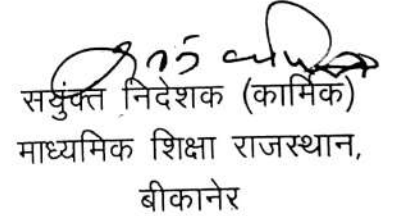 सयुंक्त निदेशक (कार्मिक)
माध्यमिक शिक्षा राजस्थान,
बीकानेर